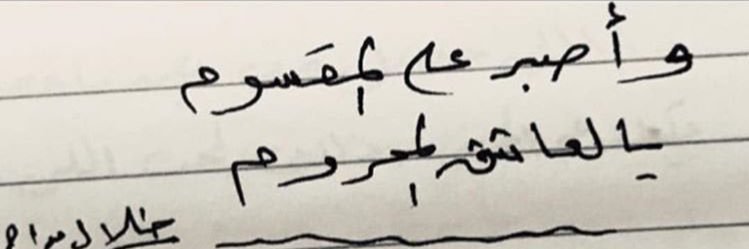 و أصبر على المقسوم
يا لعاشق المحروم